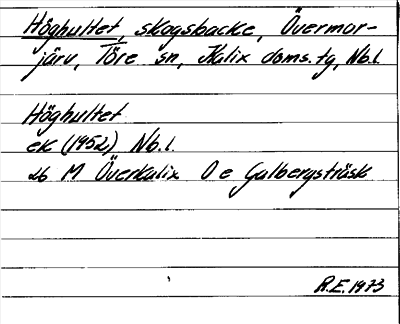 Höghultet, skogsbacke, Övermor-
järv, Töre sn, Kalix doms. tg, Nb.l.
Höghultet
ek (1952) Nb.l.
26 M Överkalix O e Galbergsträsk
R.E. 1973